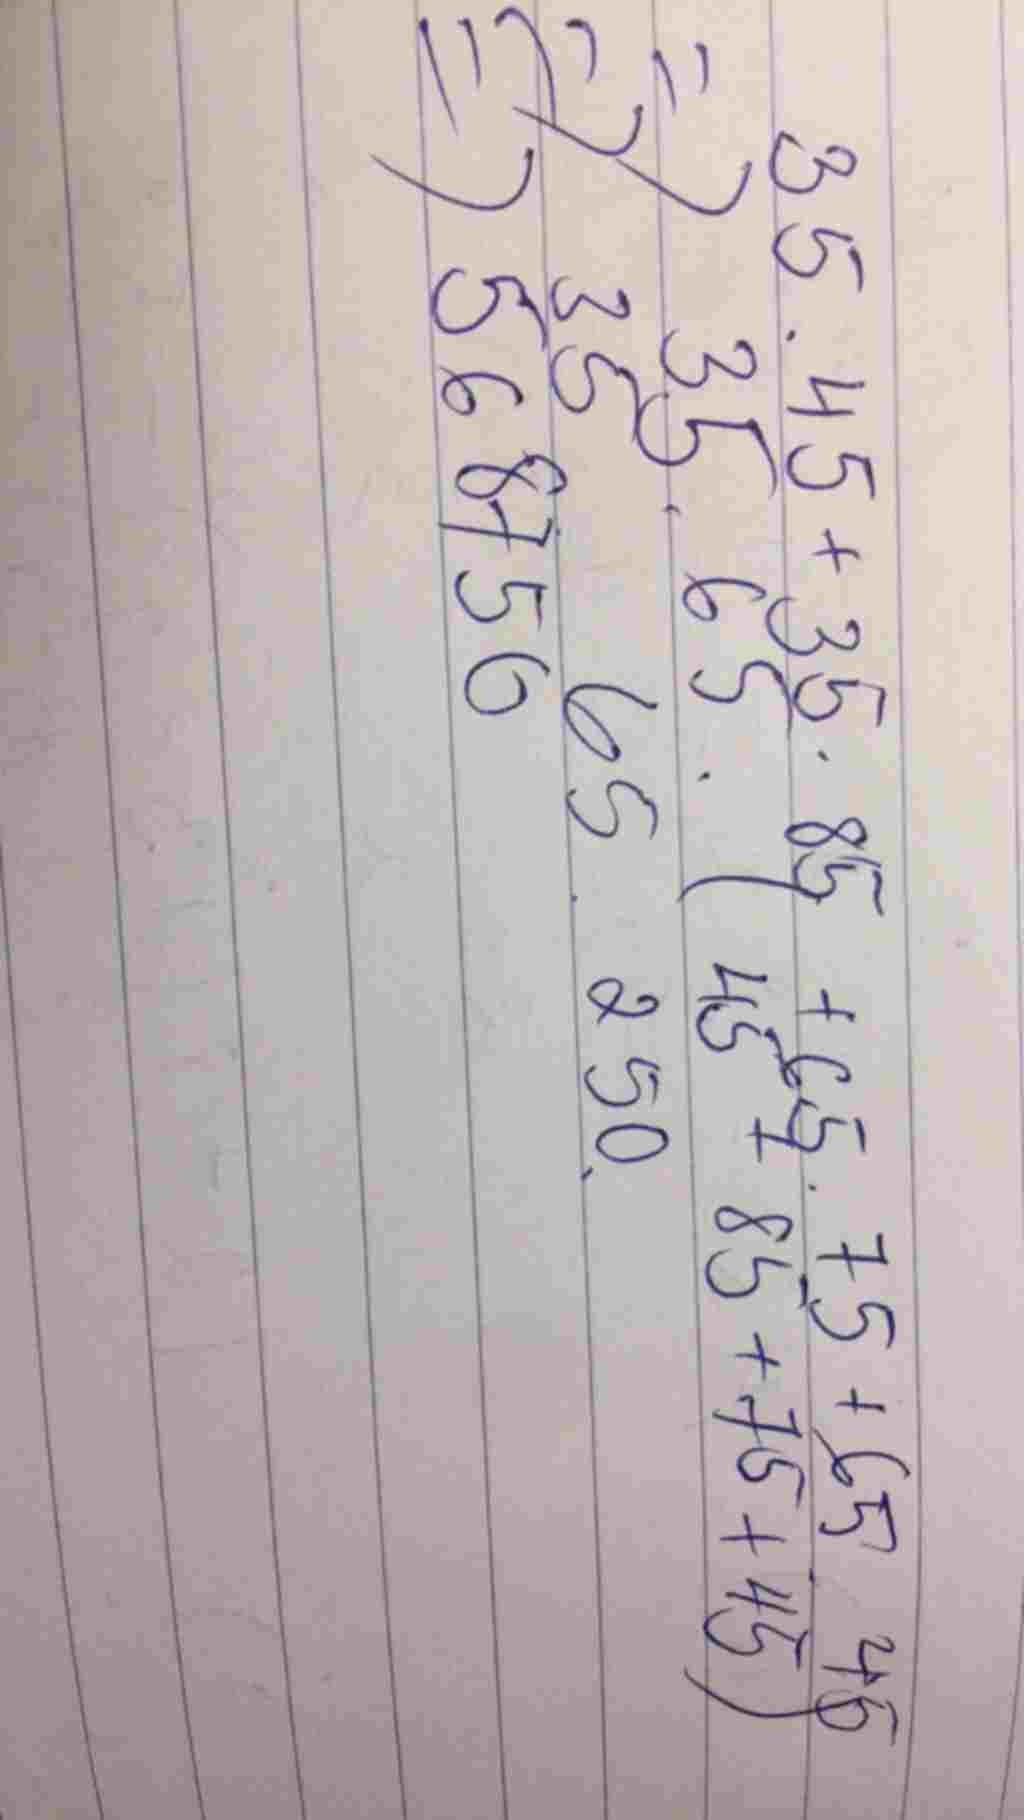 35.45+35.85+65.75+65.45
=) 35.65.(45+85+75+45)
=) 35 65.250.
=) 568750